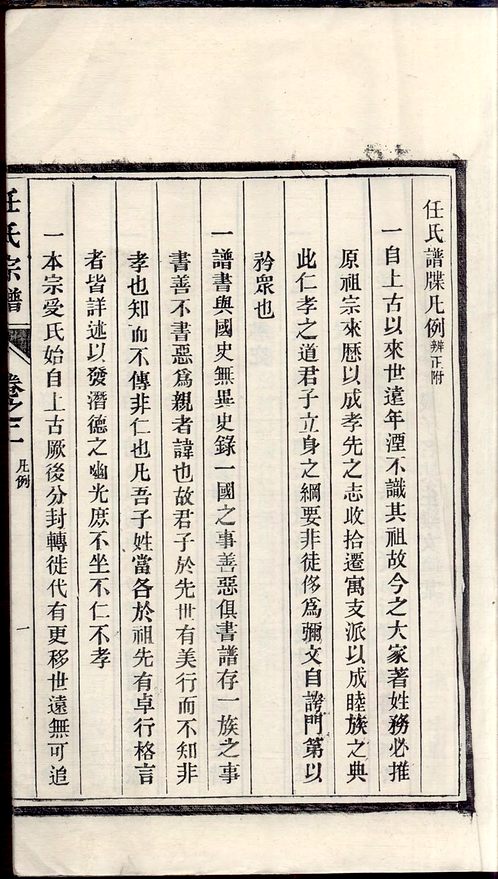 任氏譜牒凡例辨正附
一自上古以來世遠年湮不識其祖故今之大家著姓務必推
原祖宗來歷以成孝先之志收拾遷寓支派以成睦族之典
此仁孝之道君子立身之綱要非徒侈爲彌文自謗門第以
矜衆也
一譜書與國史無異史錄一國之事善惡俱書譜存一族之事
書善不書惡爲親者諱也故君子於先世有美行而不知非
孝也知而不傳非仁也凡吾子姓當各於祖先有卓行格言
者皆詳述以發潛德之幽光庶不坐不仁不孝
一本宗受氏始自上古厥後分封轉徙代有更移世遠無可追
任氏宗譜 卷之一 凡例 一